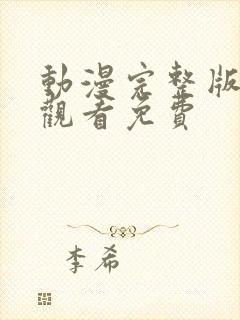 動漫完整版
觀看免費
李希